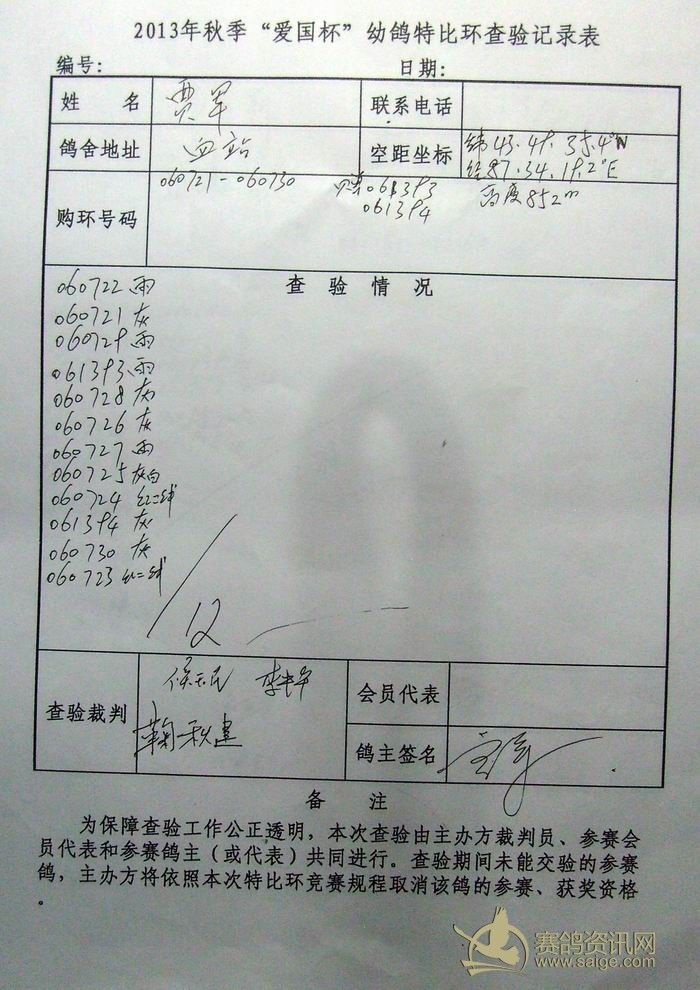 2013年秋季“爱国杯”幼鸽特比环查验记录表
编号： 日期：
姓 名 贾军 联系电话
鸽舍地址 血站 空距坐标 纬43.49.35.4"N
经87.34.19.2"E
购环号码 060721-060730 赠061393 高度852m
061394
查 验 情 况
060722 雨
060721 灰
060729 雨
061393 雨
060728 灰
060726 灰
060727 雨
060725 灰白
060724 红二线
061394 灰
060730 灰
060723 红二线
12
查验裁判 侯天民 会员代表
鞠秋建 鸽主签名
备 注
为保障查验工作公正透明，本次查验由主办方裁判员、参赛会
员代表和参赛鸽主（或代表）共同进行。查验期间未能交验的参赛
鸽，主办方将依照本次特比环竞赛规程取消该鸽的参赛、获奖资格
。
赛鸽资讯网
www.saige.com